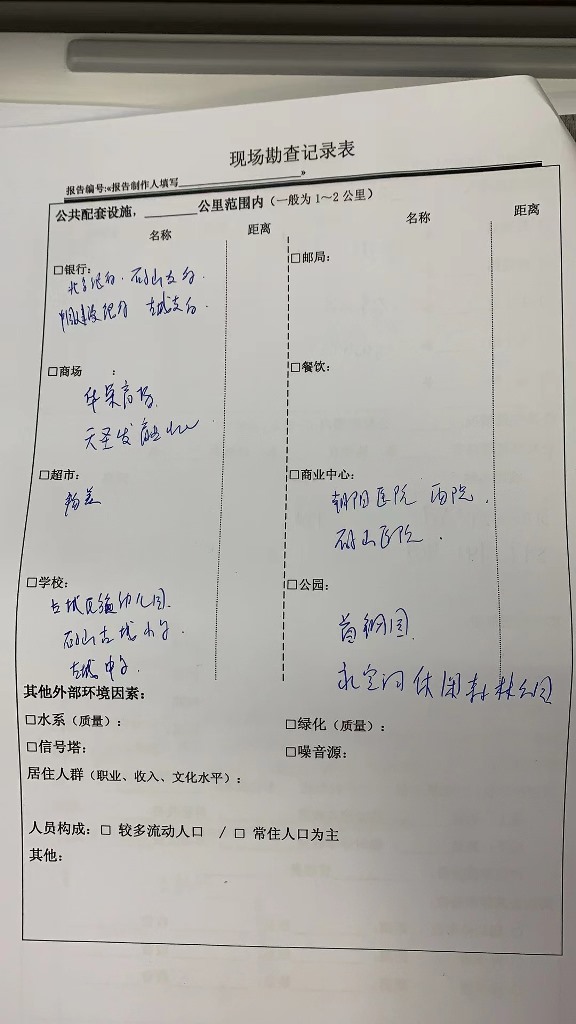 现场勘查记录表
报告编号:«报告制作人填写 »
公共配套设施，________公里范围内（一般为1～2公里）
名称 距离 名称 距离
□银行： □邮局：
北京银行.石景山支行.
中国建设银行 古城支行.
□商场 ： □餐饮：
华荣商场.
天圣发
□超市： □商业中心：
物美 朝阳医院 西院.
石景山医院.
□学校： □公园：
古城 幼儿园. 首钢园.
石景山古城小学.
古城中学. 永定河休闲森林公园
其他外部环境因素：
□水系（质量）： □绿化（质量）：
□信号塔： □噪音源：
居住人群（职业、收入、文化水平）：
人员构成：□ 较多流动人口 / □ 常住人口为主
其他：